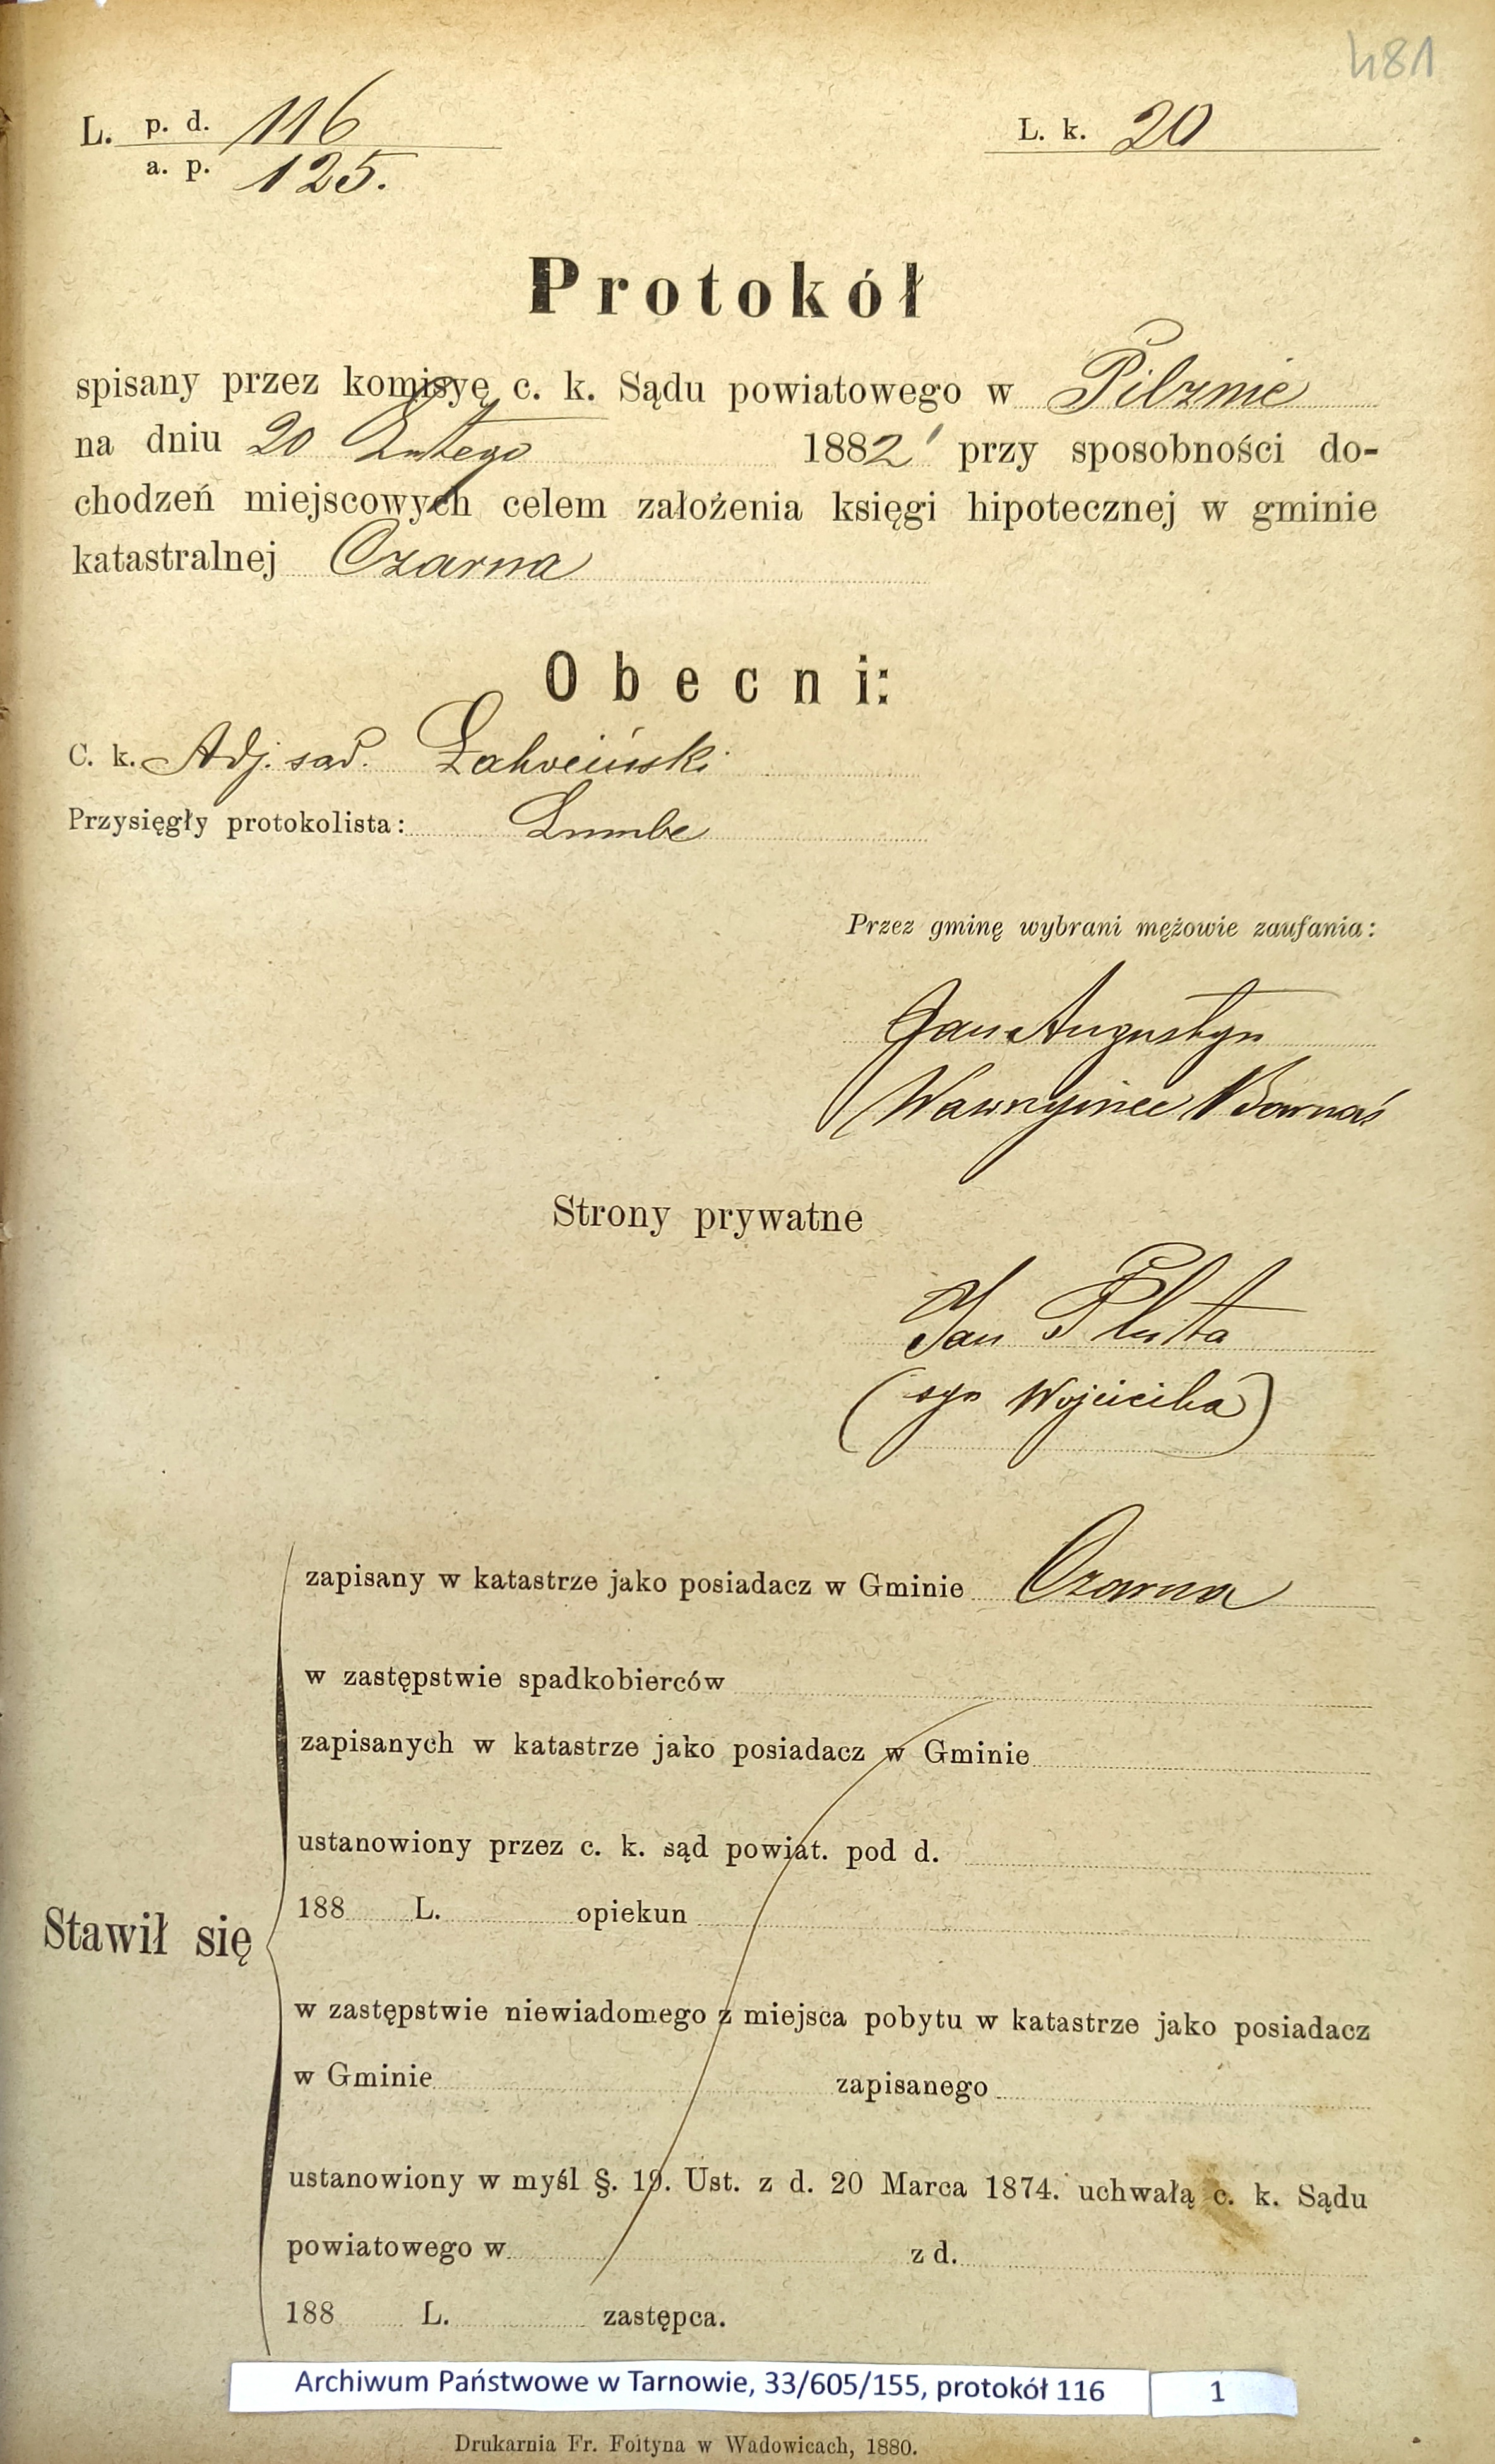 481
L. p. d. 116
a. p. 125.
L. k. 20
Protokół
spisany przez komisyę c. k. Sądu powiatowego w Pilznie
na dniu 20 Lutego 1882 przy sposobności do-
chodzeń miejscowych celem założenia księgi hipotecznej w gminie
katastralnej Czarna
Obecni:
C. k. Adj. sąd.
Przysięgły protokolista:
Przez gminę wybrani mężowie zaufania:
Jan Augustyn
Wawrzyniec Barnaś
Strony prywatne
Jan Pluta
(syn Wojciecha)
zapisany w katastrze jako posiadacz w Gminie Czarna
w zastępstwie spadkobierców
zapisanych w katastrze jako posiadacz w Gminie
ustanowiony przez c. k. sąd powiat. pod d.
188 L. opiekun
Stawił się
w zastępstwie niewiadomego z miejsca pobytu w katastrze jako posiadacz
w Gminie zapisanego
ustanowiony w myśl §. 19. Ust. z d. 20 Marca 1874. uchwałą c. k. Sądu
powiatowego w z d.
188 L. zastępca.
Archiwum Państwowe w Tarnowie, 33/605/155, protokół 116 1
Drukarnia Fr. Foltyna w Wadowicach, 1880.